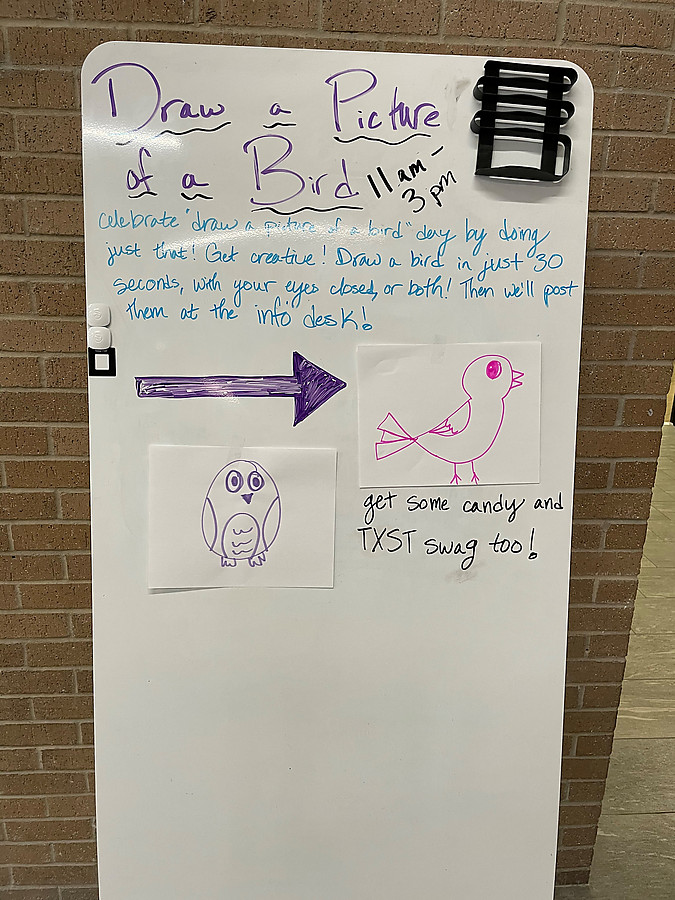 Draw a Picture
of a Bird 11 am -
3 pm
celebrate "draw a picture of a bird" day by doing
just that! Get creative! Draw a bird in just 30
seconds, with your eyes closed, or both! Then we'll post
them at the info desk!
get some candy and
TXST swag too!